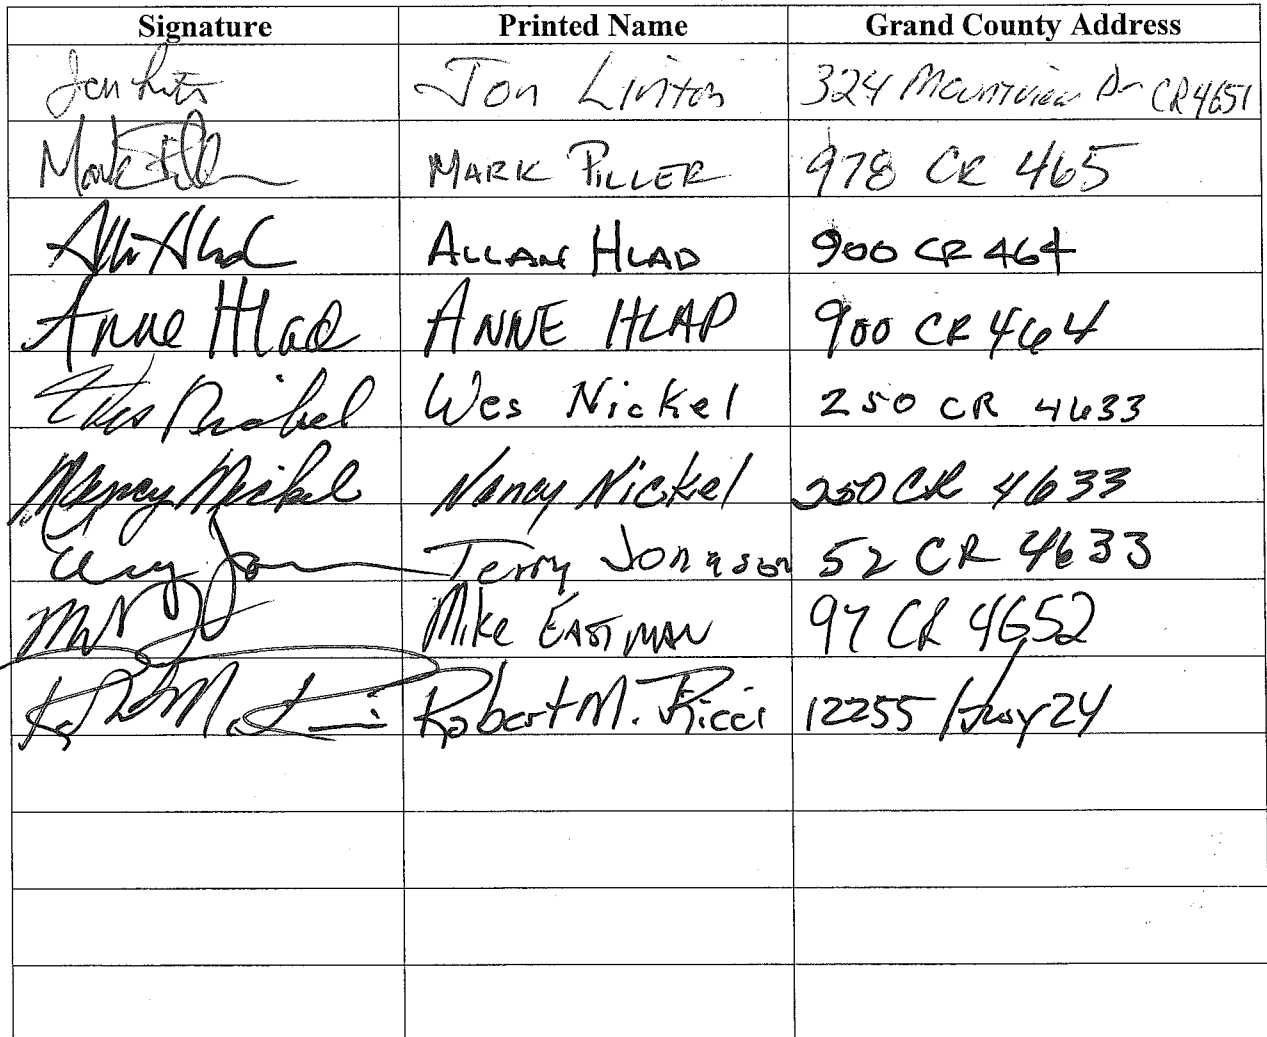 Signature Printed Name Grand County Address
Jon Linton Jon Linton 324 Mountview Dr CR 4651
Mark Piller MARK PILLER 978 CR 465
Allan Hlad ALLAN HLAD 900 CR 464
Anne Hlad ANNE HLAD 900 CR 464
Wes Nickel Wes Nickel 250 CR 4633
Nancy Nickel Nancy Nickel 250 CR 4633
Terry Jonason 52 CR 4633
Mike EASTMAN 97 CR 4652
Robert M. Ricci Robert M. Ricci 12255 Hwy 24